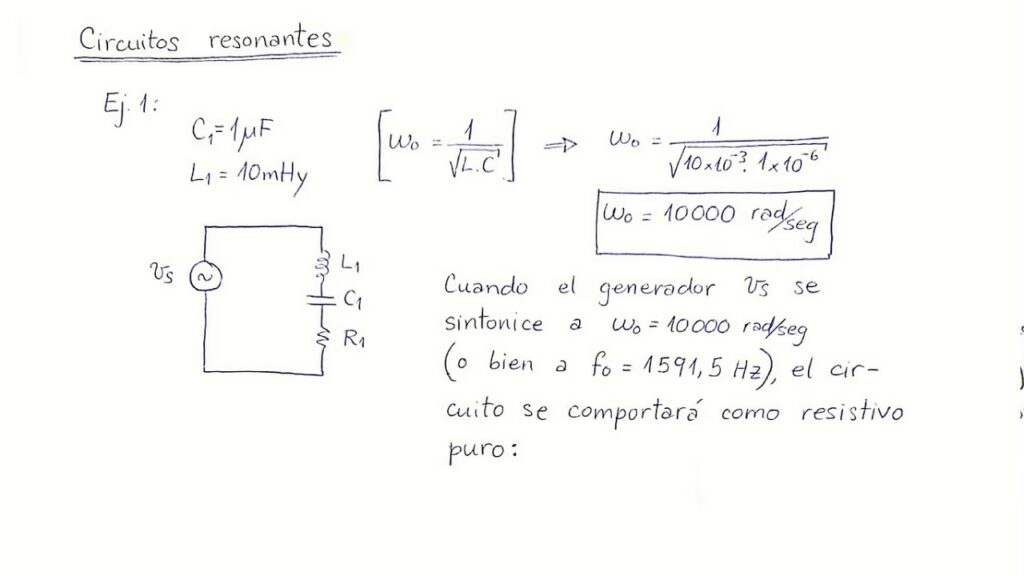 Circuitos resonantes
Ej. 1:
C₁ = 1μF
L₁ = 10mHy
[ω₀ = 1/√(L.C)] ⇒ ω₀ = 1/√(10×10⁻³. 1×10⁻⁶)
ω₀ = 10000 rad/seg
υs
~
L₁
C₁
R₁
Cuando el generador υs se
sintonice a ω₀ = 10000 rad/seg
(o bien a f₀ = 1591,5 Hz), el cir-
cuito se comportará como resistivo
puro: